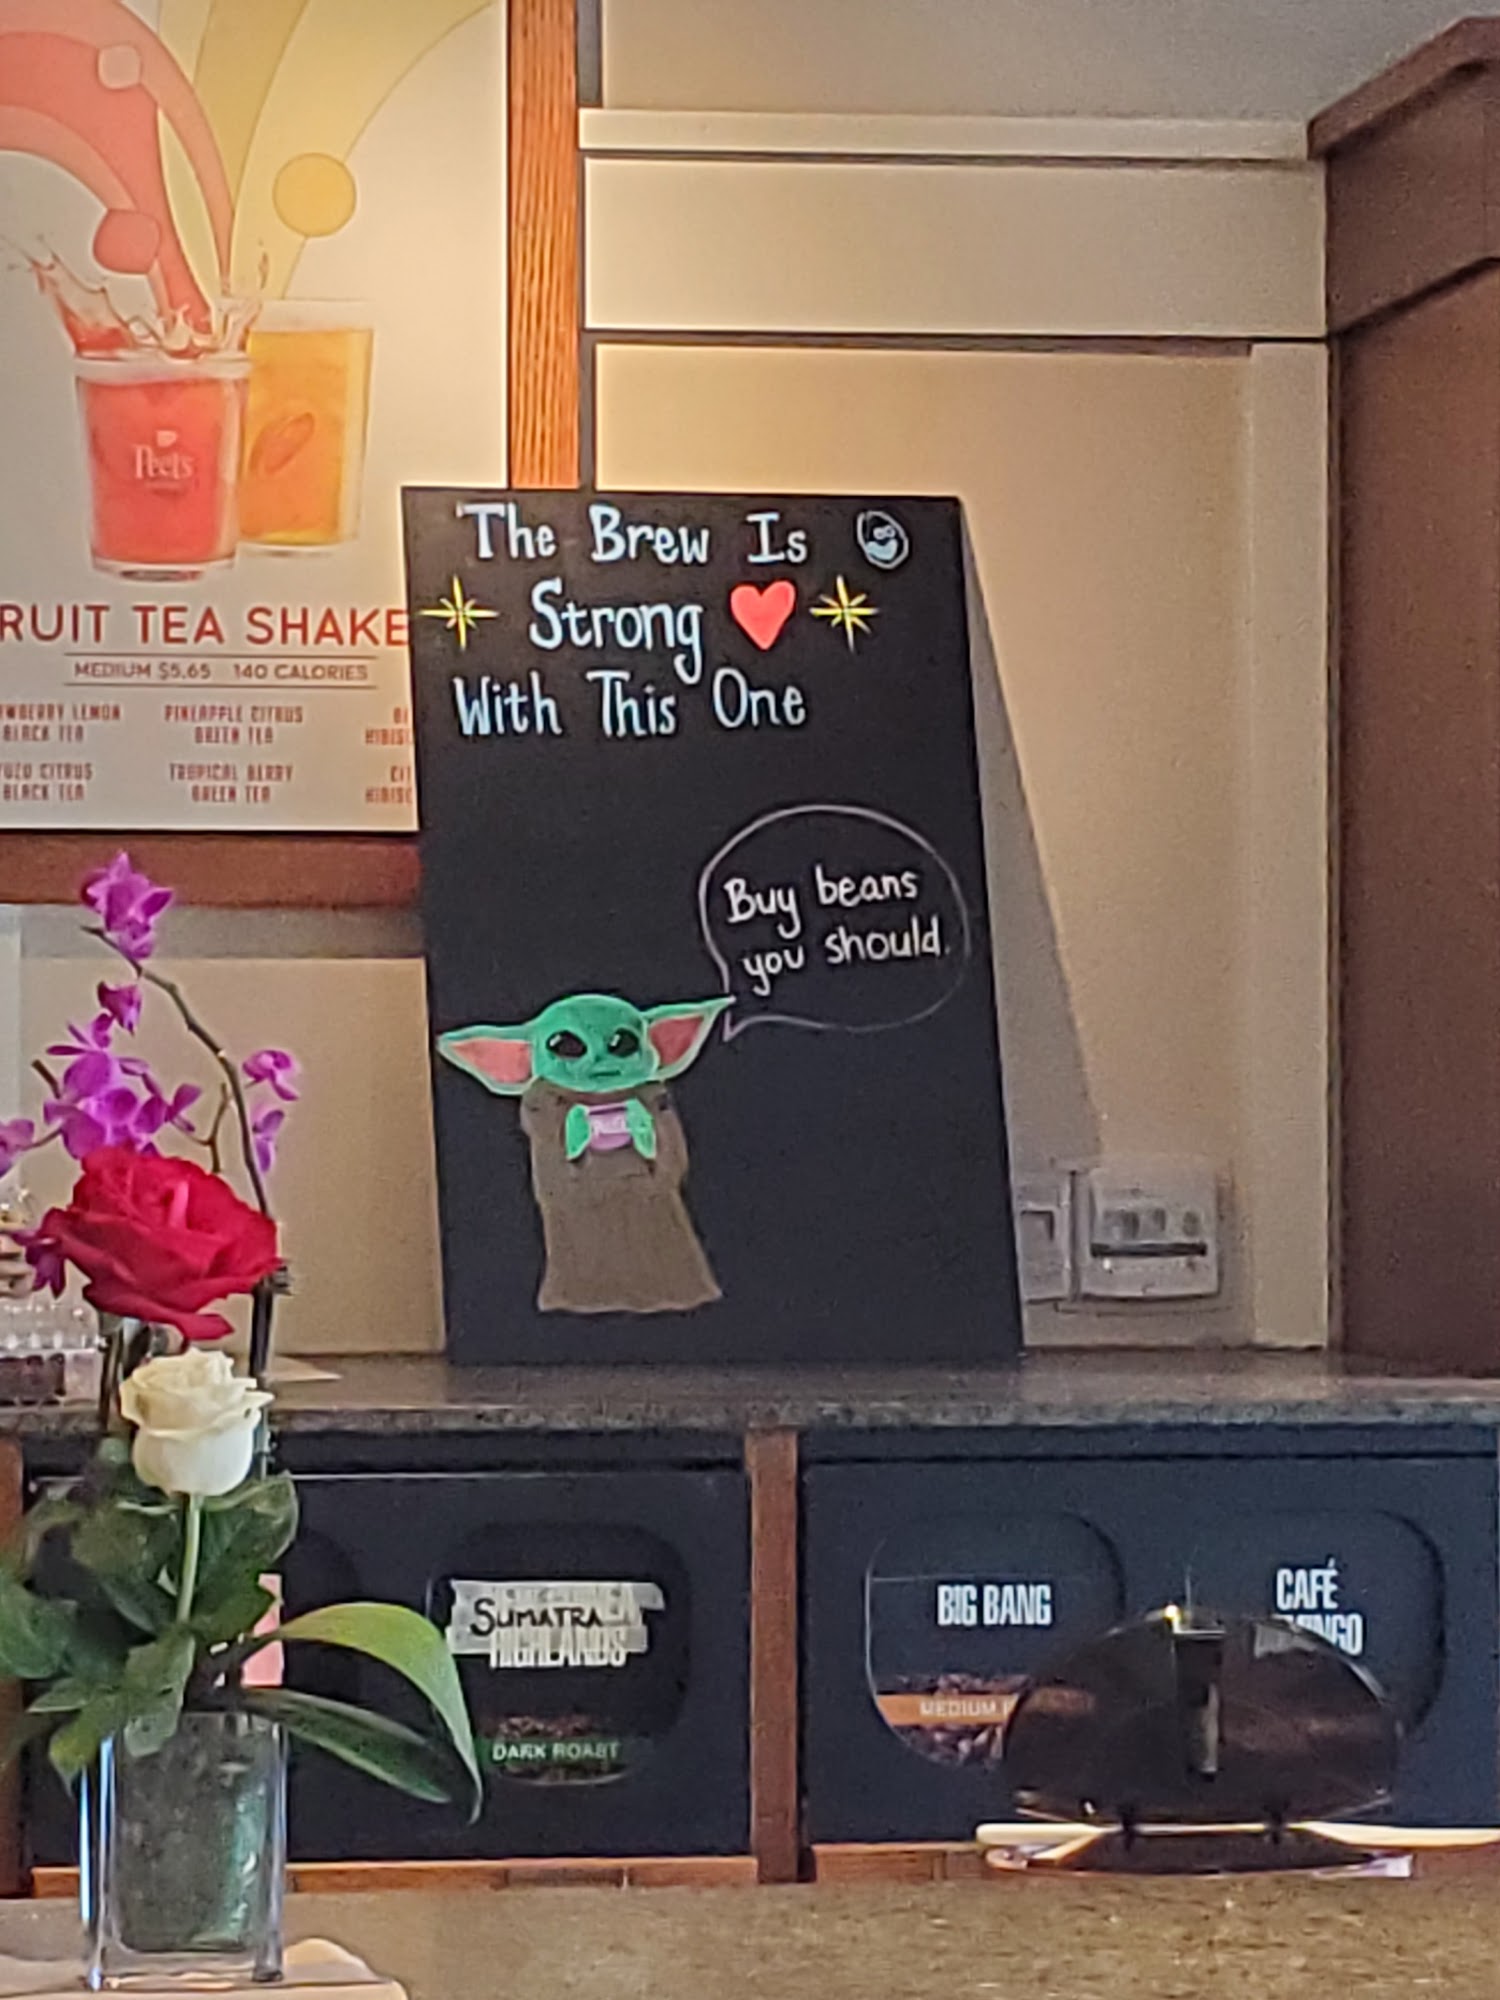 Peet's
RUIT TEA SHAKE
MEDIUM $5.65 140 CALORIES
WBERRY LEMON
BLACK TEA
PINEAPPLE CITRUS
GREEN TEA
YUZU CITRUS
BLACK TEA
TROPICAL BERRY
GREEN TEA
The Brew Is
Strong
With This One
Buy beans
you should.
SUMATRA
HIGHLANDS
DARK ROAST
BIG BANG
MEDIUM
CAFÉ